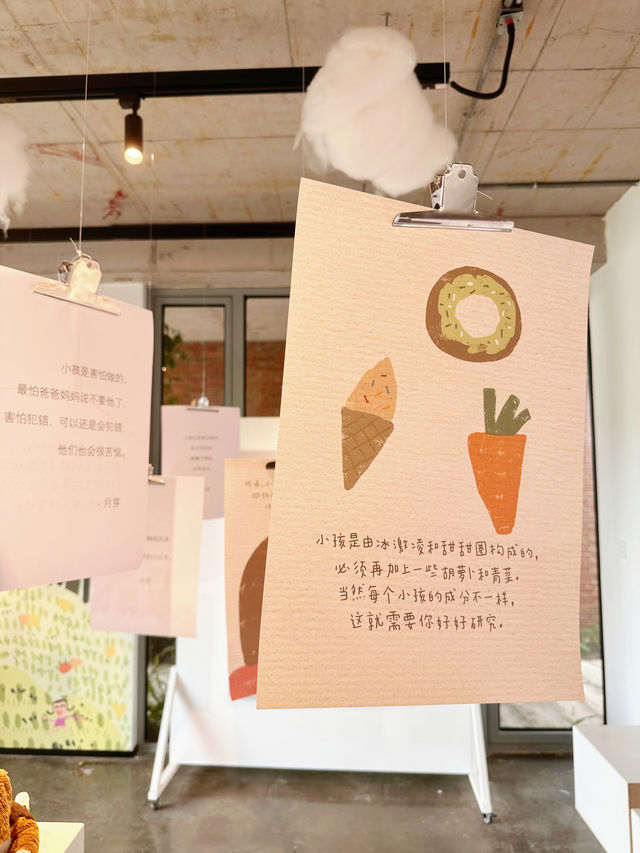 小孩是害怕做的,
最怕爸爸妈妈说不要他了,
害怕犯错，可以还是会犯错,
他们也会很苦恼。
- 月芽
小孩是由冰激凌和甜甜圈构成的,
必须再加上一些胡萝卜和青菜.
当然每个小孩的成分不一样,
这就需要你好好研究.